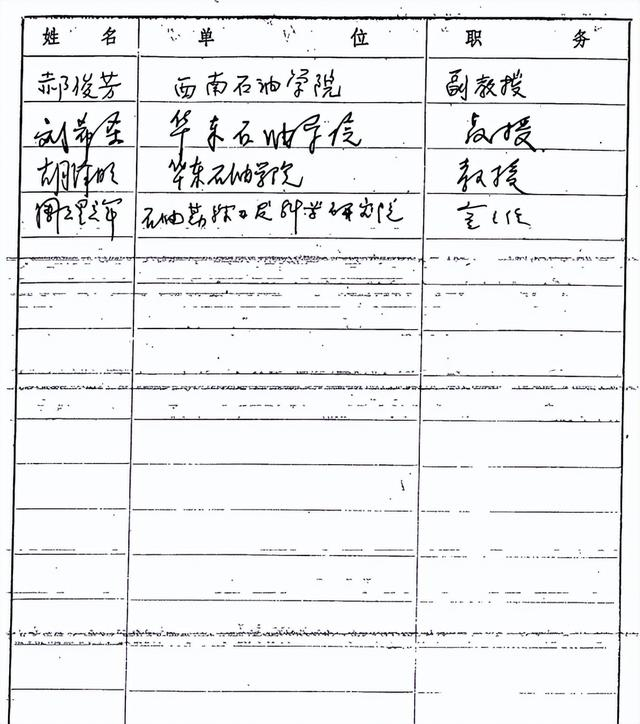 姓 名 单 位 职 务
郝俊芳 西南石油学院 副教授
刘希圣 华东石油学院 教授
胡 华东石油学院 教授
石油勘探开发科学研究院 主任